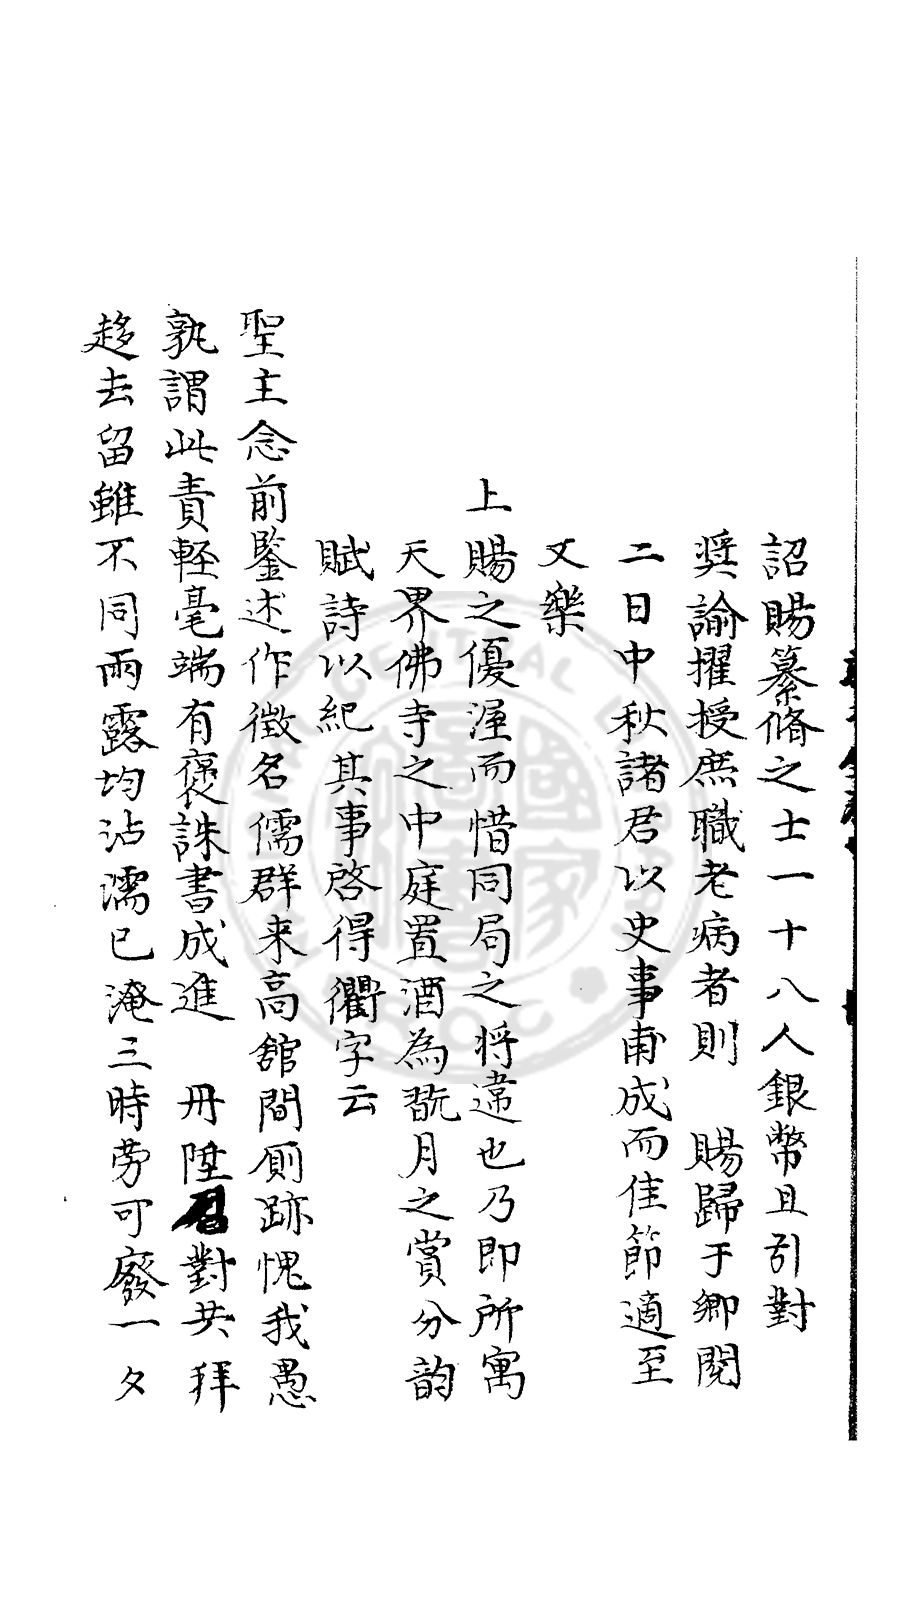 詔賜纂脩之士一十八人銀幣且引對
奬諭擢授庶職老病者則 賜歸于鄉閱
二日中秋諸君以史事甫成而佳節適至
又樂
上賜之優渥而惜同局之将違也乃即所寓
天界佛寺之中庭置酒為翫月之賞分韵
賦詩以紀其事啓得衢字云
聖主念前鑒述作徵名儒群来高舘間厠跡愧我愚
孰謂此責輕毫端有褒誅書成進 丹陛召對共拜
趍去留雖不同雨露均沾濡已淹三時勞可廢一夕